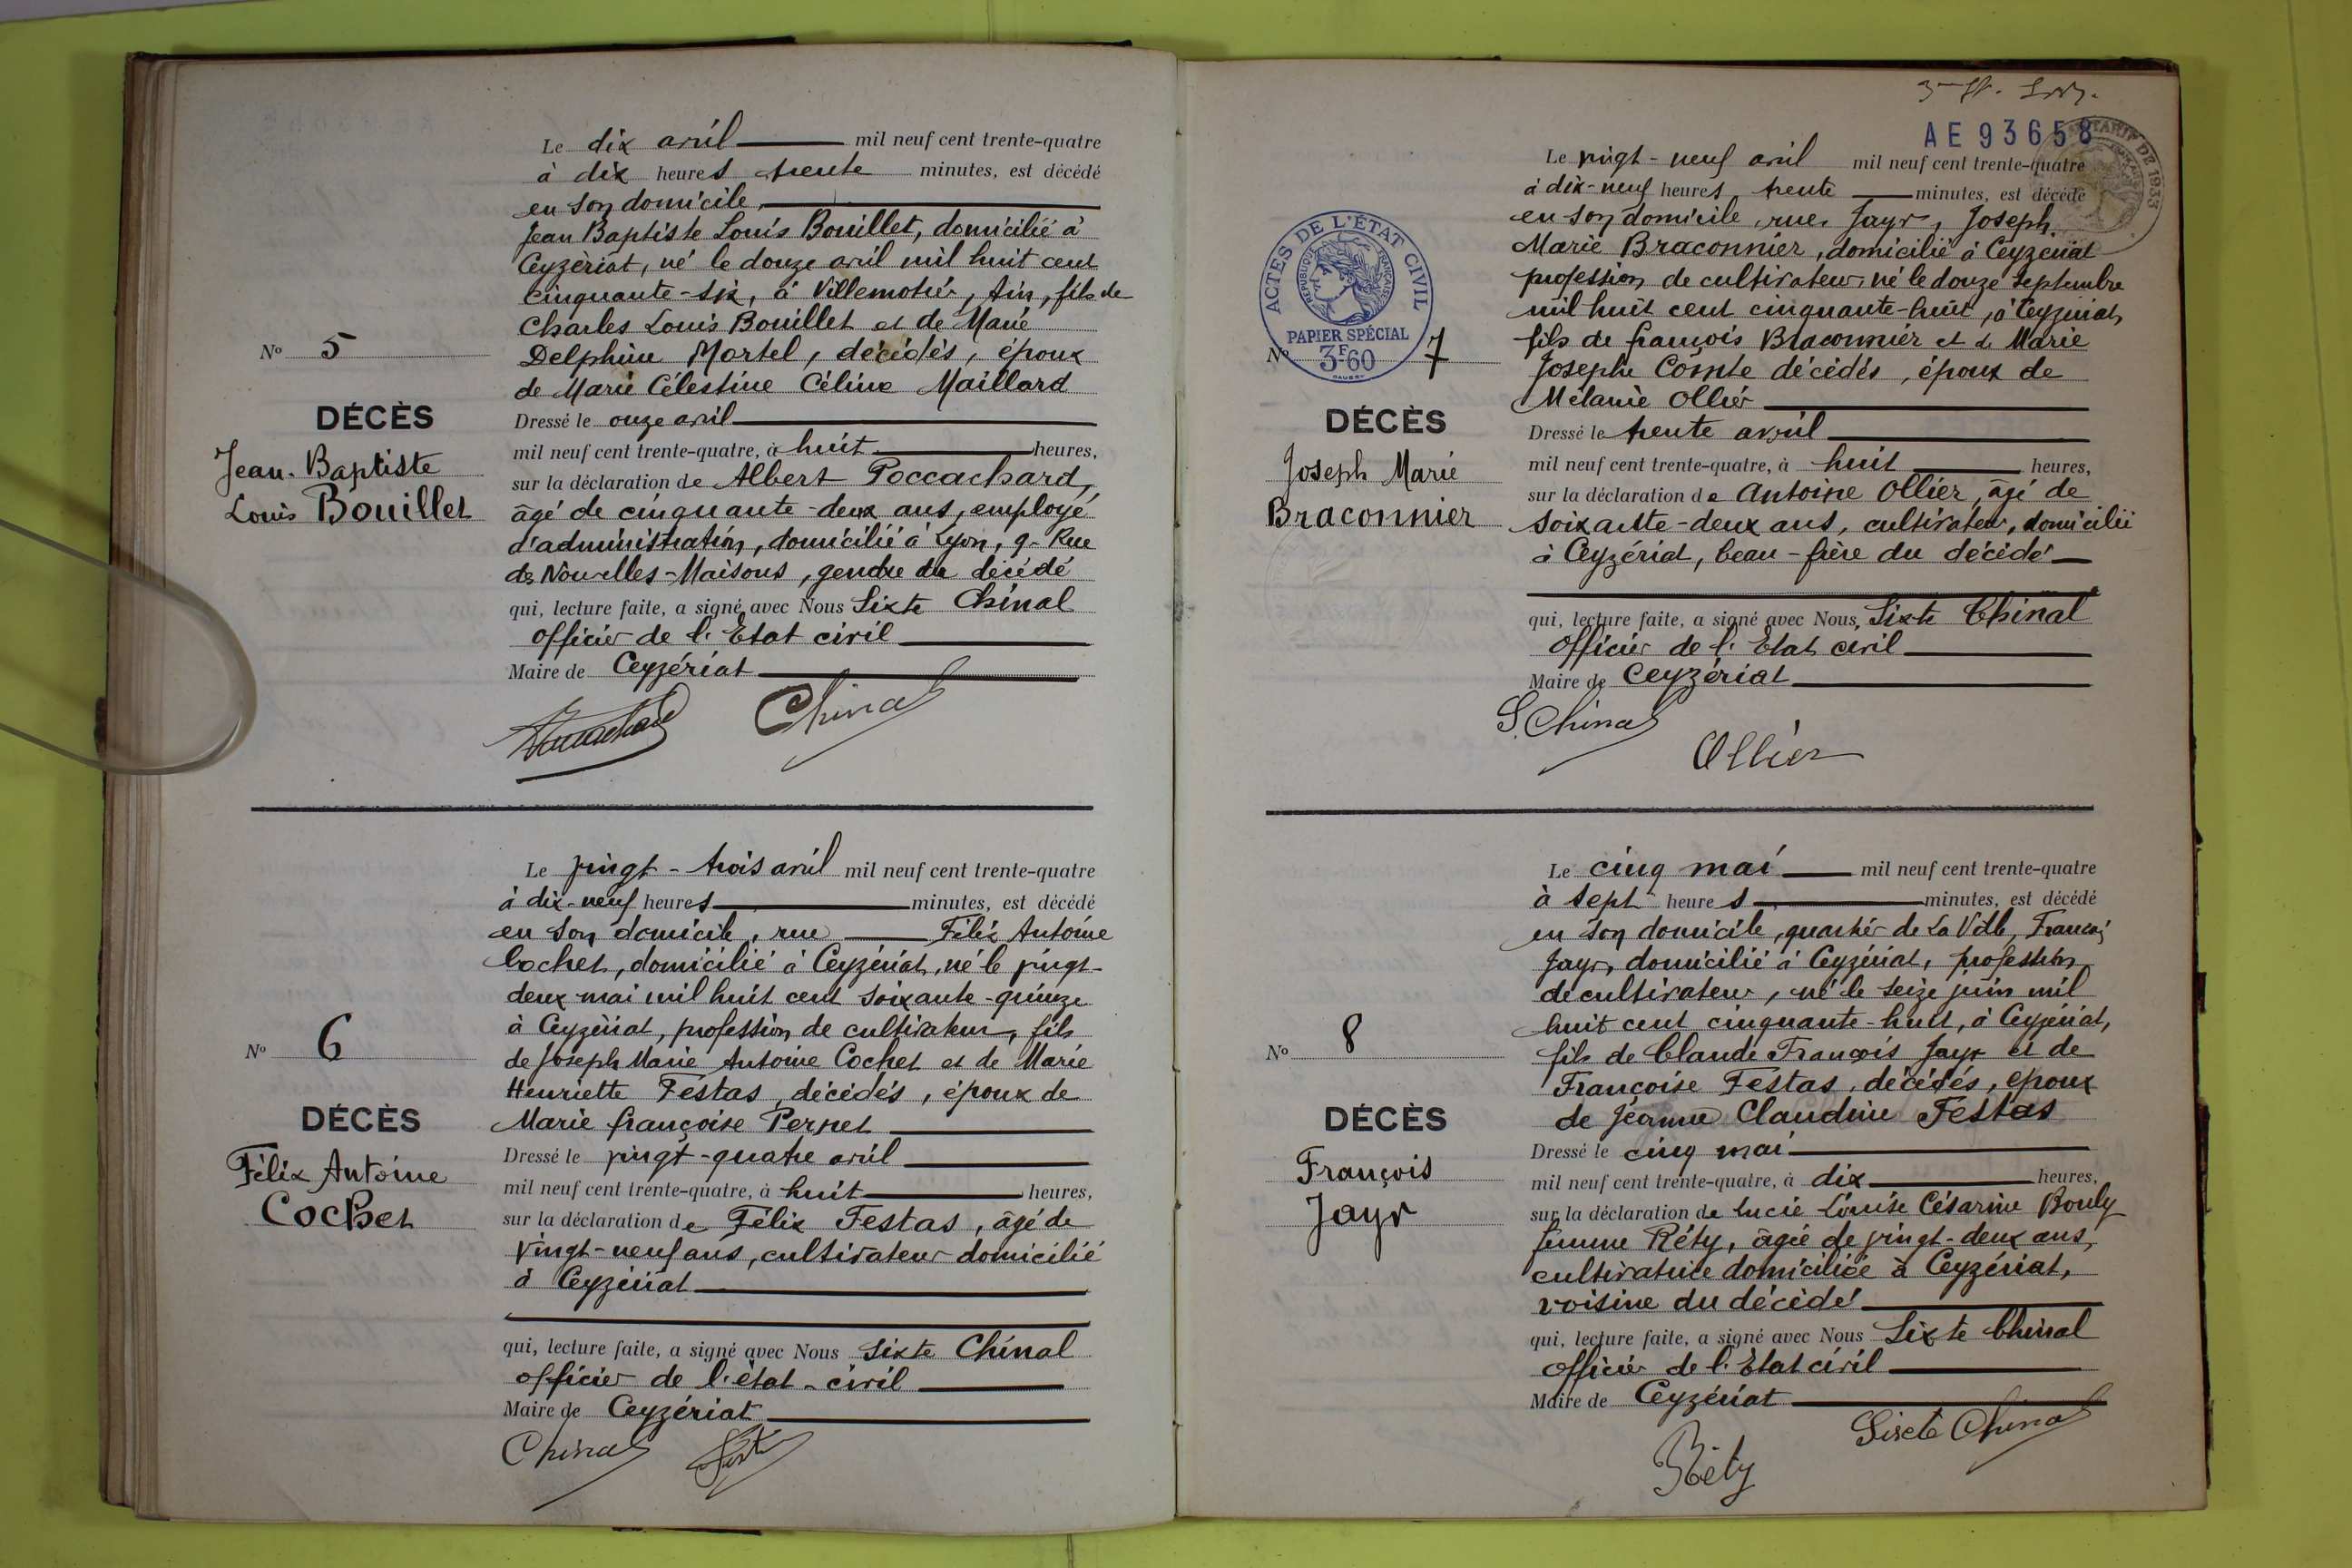 Le dix avril mil neuf cent trente-quatre
à dix heures trente minutes, est décédé
en son domicile,
Jean Baptiste Louis Bouillet, domicilié à
Ceyzériat, né le douze avril mil huit cent
cinquante-six, à Villemotier, Ain, fils de
Charles Louis Bouillet et de Marie
Delphine Mortel, décédés, époux
de Marie Célestine Céline Maillard
Dressé le onze avril
mil neuf cent trente-quatre, à huit heures,
sur la déclaration de Albert Poccachard,
âgé de cinquante-deux ans, employé
d'administration, domicilié à Lyon, 9. Rue
des Nouvelles-Maisons, gendre du décédé
qui, lecture faite, a signé avec Nous Sixte Chinal
officier de l'Etat civil
Maire de Ceyzériat
Chinal
N° 5
DÉCÈS
Jean-Baptiste
Louis Bouillet
Le vingt-trois avril mil neuf cent trente-quatre
à dix-neuf heures minutes, est décédé
en son domicile, rue Félix Antoine
Cochet, domicilié à Ceyzériat, né le vingt-
deux mai mil huit cent soixante-quinze
à Ceyzériat, profession de cultivateur, fils
de Joseph Marie Antoine Cochet et de Marie
Henriette Festas, décédés, époux de
Marie françoise Pernet
Dressé le vingt-quatre avril
mil neuf cent trente-quatre, à huit heures,
sur la déclaration de Félix Festas, âgé de
vingt-neuf ans, cultivateur domicilié
à Ceyzériat
qui, lecture faite, a signé avec Nous Sixte Chinal
officier de l'état-civil
Maire de Ceyzériat
Chinal
N° 6
DÉCÈS
Félix Antoine
Cochet
AE 93658
TARIF DE 1933
Le vingt-neuf avril mil neuf cent trente-quatre
à dix-neuf heures, trente minutes, est décédé
en son domicile rue Jayr, Joseph
Marie Braconnier, domicilié à Ceyzériat
profession de cultivateur, né le douze septembre
mil huit cent cinquante-huit, à Ceyzériat,
fils de françois Braconnier et de Marie
Josephe Comte décédés, époux de
Mélanie Ollier
Dressé le trente avril
mil neuf cent trente-quatre, à huit heures,
sur la déclaration de Antoine Ollier, âgé de
soixante-deux ans, cultivateur, domicilié
à Ceyzériat, beau-frère du décédé
qui, lecture faite, a signé avec Nous, Sixte Chinal
Officier de l'Etat civil
Maire de Ceyzériat
S. Chinal
Ollier
ACTES DE L'ÉTAT CIVIL
RÉPUBLIQUE FRANÇAISE
PAPIER SPÉCIAL
3F60
N° 7
DÉCÈS
Joseph Marie
Braconnier
Le cinq mai mil neuf cent trente-quatre
à sept heures minutes, est décédé
en son domicile, quartier de La Ville, François
Jayr, domicilié à Ceyzériat, profession
de cultivateur, né le seize juin mil
huit cent cinquante-huit, à Ceyzériat,
fils de Claude François Jayr et de
Françoise Festas, décédés, époux
de Jeanne Claudine Festas
Dressé le cinq mai
mil neuf cent trente-quatre, à dix heures,
sur la déclaration de Lucie Louise Césarine Bouly
femme Réty, âgée de vingt-deux ans,
cultivatrice domiciliée à Ceyzériat,
voisine du décédé
qui, lecture faite, a signé avec Nous Sixte Chinal
officier de l'Etat civil
Maire de Ceyzériat
Sixte Chinal
Réty
N° 8
DÉCÈS
François
Jayr